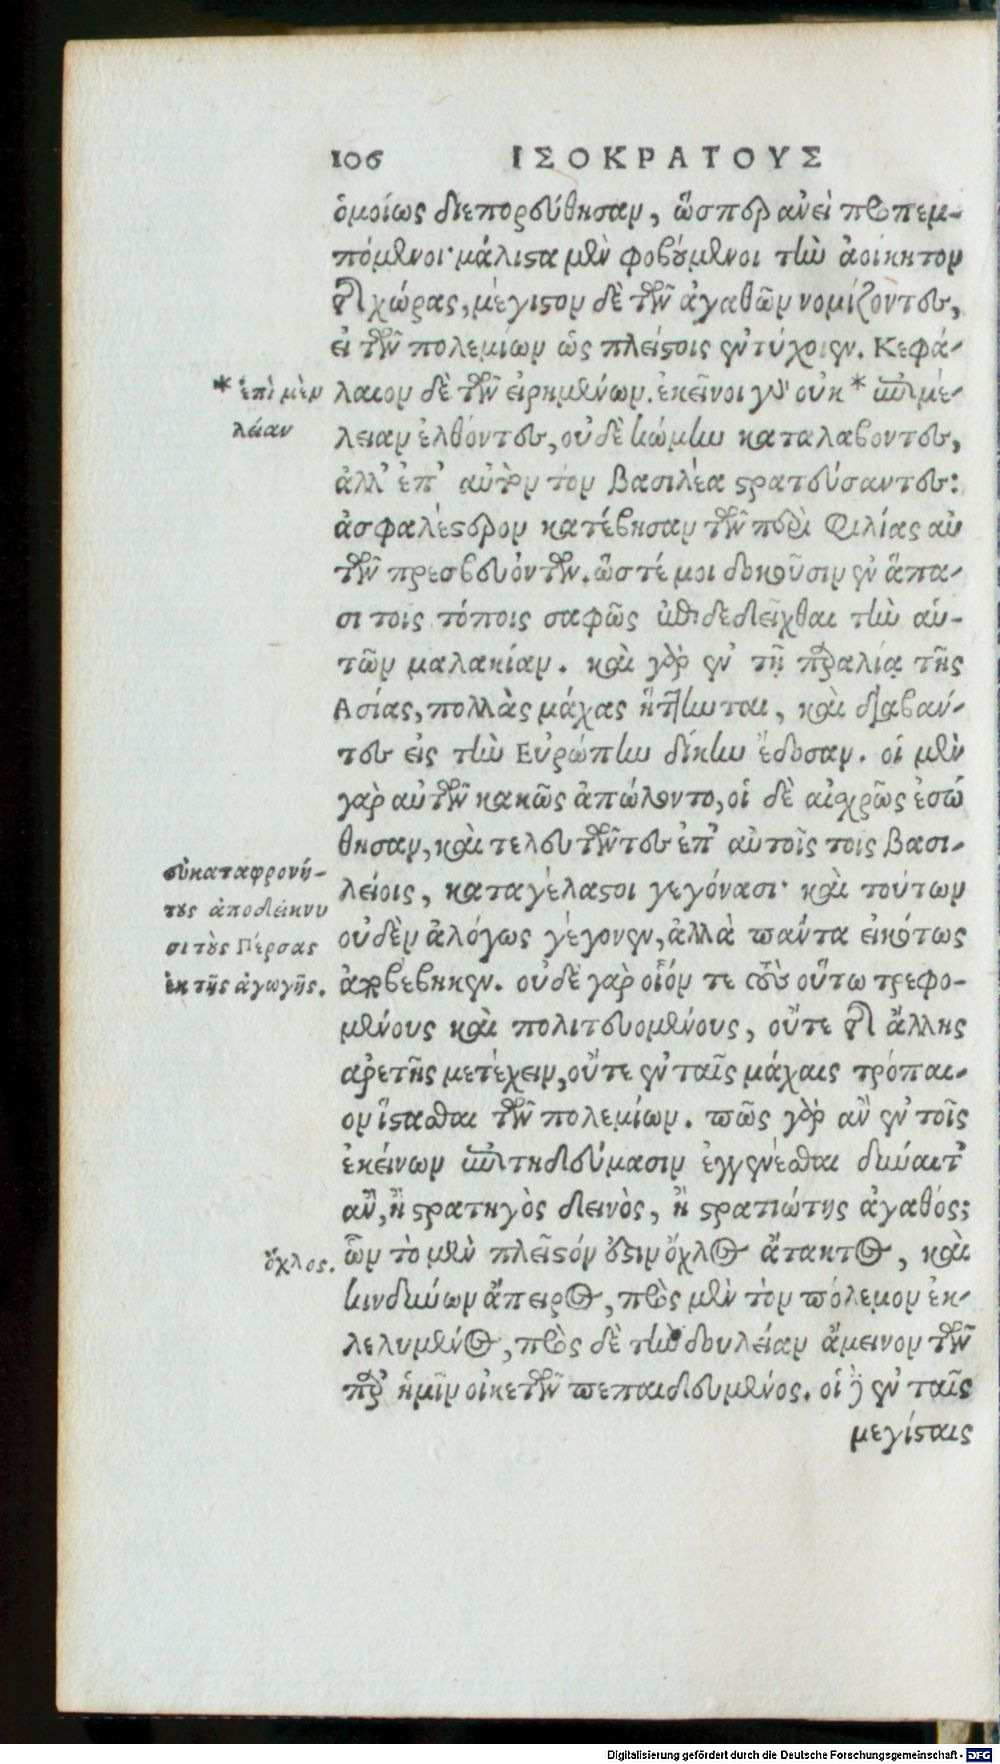 106 ΙΣΟΚΡΑΤΟΥΣ
ὁμοίως διεπορεύθησαν, ὥσπερ ανεὶ προπεμ-
πόμενοι· μάλιστα μὲν φοβούμενοι τὴν ἀοίκητον
τῆς χώρας, μέγιστον δὲ τῶν ἀγαθῶν νομίζοντες,
εἰ τῶν πολεμιων ὡς πλείστοις ἐντύχοιεν. Κεφά-
λαιον δὲ τῶν εἰρημένων. ἐκεῖνοι γὰρ οὐκ * ἐπιμέ-
λειαν ἐλθόντες, οὐδὲ κώμην καταλαβοντες,
ἀλλ' ἐπ' αὐτὸν τον βασιλέα στρατεύσαντες:
ἀσφαλέστερον κατέβησαν τῶν περὶ φιλίας αὐ
τῶν πρεσβευόντων. ὥστέ μοι δοκοῦσιν ἐν ἅπα-
σι τοις τόποις σαφῶς ἐπιδεδεῖχθαι τὴν αὑ-
τῶν μαλακίαν. καὶ γὰρ ἐν τῇ παραλίᾳ τῆς
Ασίας, πολλὰς μάχας ἥττηνται, καὶ διαβάν-
τες εἰς τὴν Εὐρώπην δίκην ἔδοσαν. οἱ μὲν
γὰρ αὐτῶν κακῶς ἀπώλοντο, οἱ δὲ αἰσχρῶς ἐσώ
θησαν, καὶ τελευτῶντες ἐπ' αὐτοῖς τοις βασι-
λείοις, καταγέλαστοι γεγόνασι· καὶ τούτων
οὐδὲν ἀλόγως γέγονεν, ἀλλὰ πάντα εἰκότως
ἀποβέβηκεν. οὐδὲ γὰρ οἷόν τε τοὺς οὕτω τρεφο-
μένους καὶ πολιτευομένους, οὔτε τῆς ἄλλης
αρετῆς μετέχειν, οὔτε ἐν ταῖς μάχαις τρόπαι-
ον ἵστασθαι τῶν πολεμίων. πῶς γὰρ ἂν ἐν τοῖς
ἐκείνων ἐπιτηδεύμασιν ἐγγενέσθαι δύναιτ'
ἂν, ἢ στρατηγὸς δεινὸς, ἢ στρατιώτης ἀγαθός;
ὧν τὸ μὲν πλεῖστόν ἐστιν ὄχλος ἄτακτος, καὶ
κινδύνων ἄπειρος, πρὸς μὲν τὸν πόλεμον ἐκ-
λελυμένος, πρὸς δὲ τὴν δουλείαν ἄμεινον τῶν
παρ' ἡμῖν οἰκετῶν πεπαιδευμένος. οἱ δὲ ἐν ταῖς
μεγίσταις
* ἐπὶ μὲν
λείαν
εὐκαταφρονή-
τους ἀποδείκνυ
σι τοὺς Πέρσας
ἐκ τῆς ἀγωγῆς.
ὄχλος.
Digitalisierung gefördert durch die Deutsche Forschungsgemeinschaft - DFG